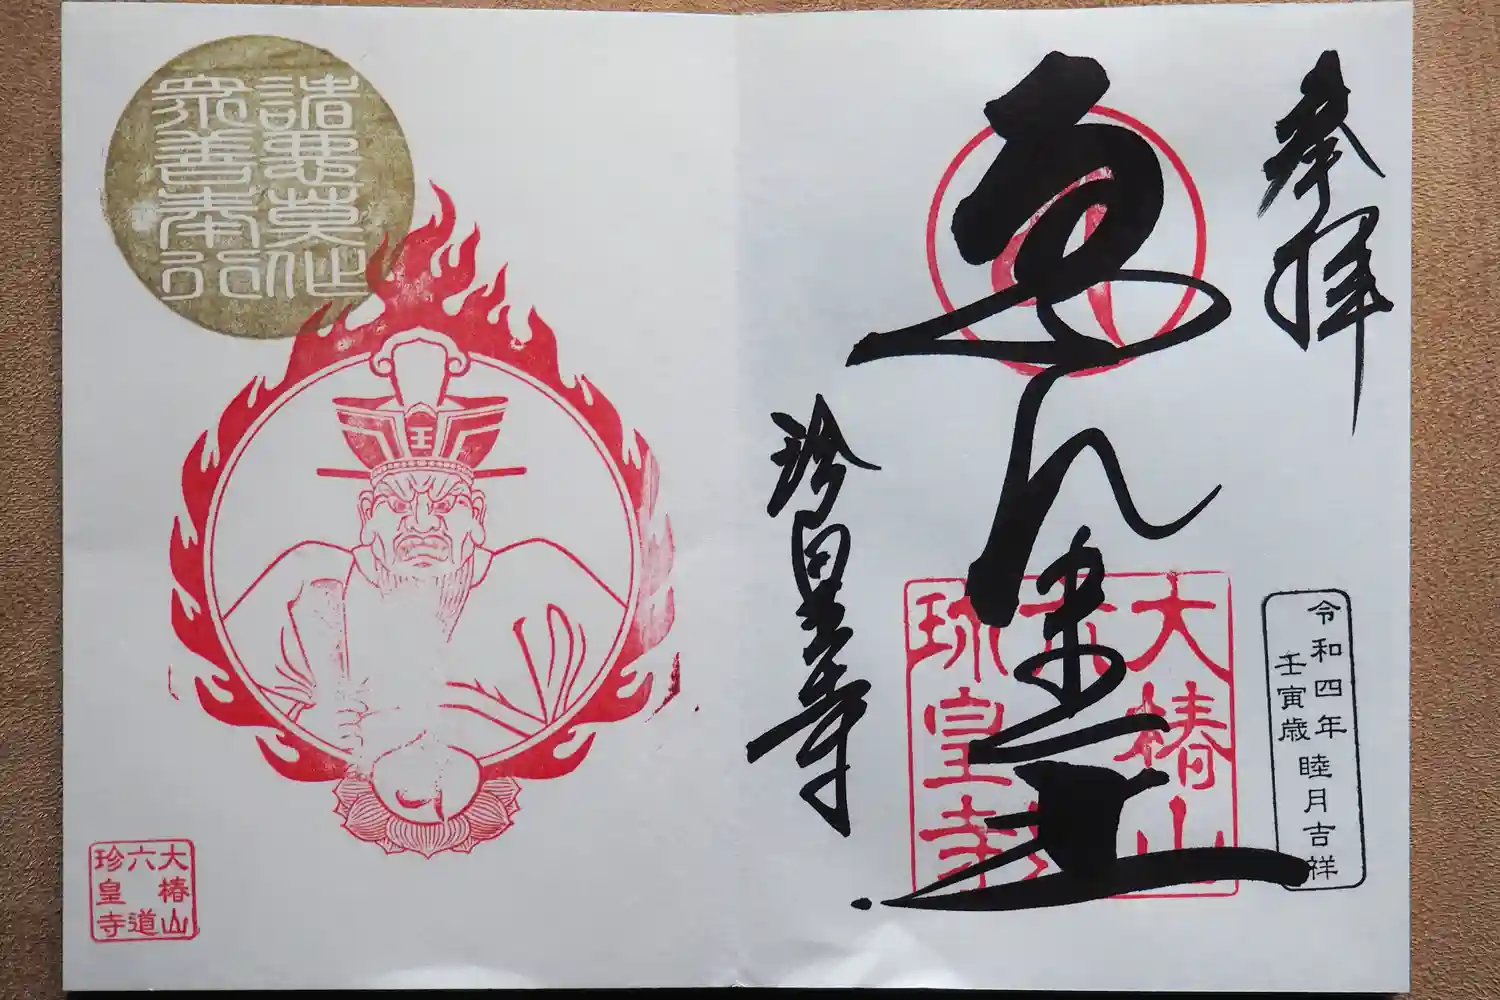 奉拝
ゑんま王
珍皇寺
大椿山
六道
珍皇寺
令和四年
壬寅歳
睦月吉祥
諸悪莫作
衆善奉行
王
大椿山
六道
珍皇寺